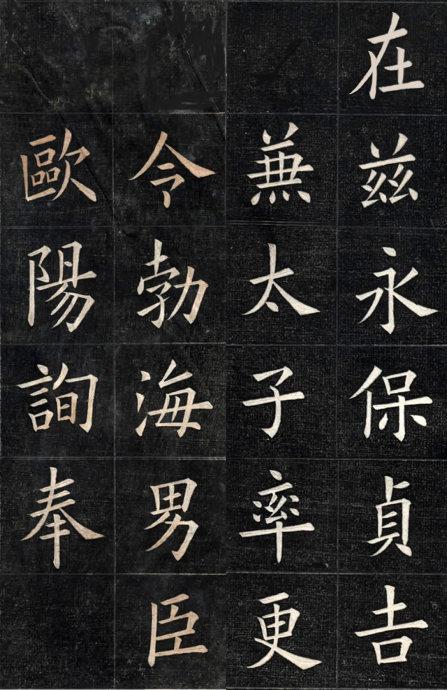 在兹永保貞吉
兼太子率更
令勃海男臣
歐陽詢奉